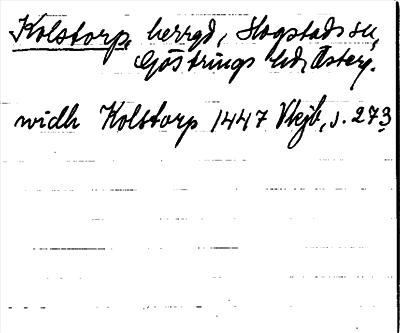 Kolstorp, herrgd, Hogstads sn,
Göstrings hd, Österg.
widh Kolstorp 1447 Vkjb, s. 273